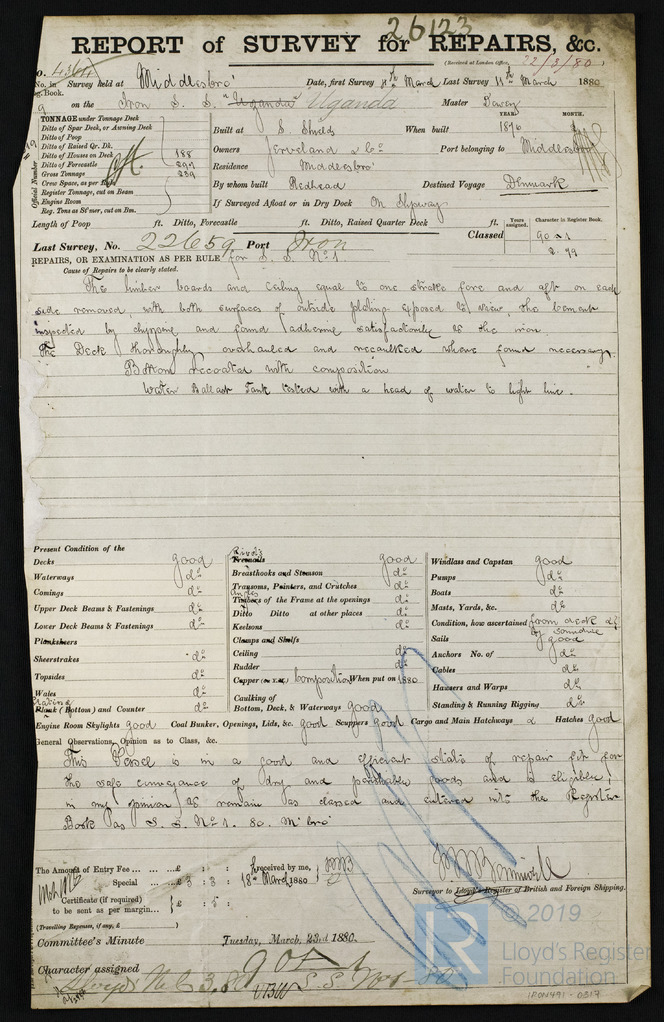 26123
REPORT of SURVEY for REPAIRS, &c.
(Received at London Office, 22/3/80)
No. in Survey held at Middlesbro' Date, first Survey 11th March Last Survey 11th March 1880
on the Iron S. S. "Uganda" Uganda Master
TONNAGE under Tonnage Deck
Ditto of Spar Deck, or Awning Deck
Ditto of Poop
Ditto of Raised Qr. Dk.
Ditto of Houses on Deck 188
Ditto of Forecastle 297
Gross Tonnage 239
Crew Space, as per Rule
Register Tonnage, cut on Beam
Engine Room
Reg. Tons as St'mer, cut on Bm.
Official Number
Built at S. Shields When built 1876
YEAR. MONTH.
Owners & Co. Port belonging to Middlesbro'
Residence Middlesbro'
By whom built Redhead Destined Voyage Denmark
If Surveyed Afloat or in Dry Dock On Slipway
Length of Poop ft. Ditto, Forecastle ft. Ditto, Raised Quarter Deck ft.
Years assigned. Character in Register Book.
Last Survey, No. 22659 Port Iron Classed 90 A 1
2. 79
REPAIRS, OR EXAMINATION AS PER RULE for S. S. No. 1
Cause of Repairs to be clearly stated.
The limber boards and ceiling equal to one strake fore and aft on each
side removed, with both surfaces of outside plating exposed to view, the cement
inspected by chipping and found adhering satisfactorily to the iron.
The Deck thoroughly overhauled and recaulked where found necessary.
Bottom recoated with composition
Water Ballast Tank tested with a head of water to light line.
Present Condition of the
Decks good
Waterways do
Comings do
Upper Deck Beams & Fastenings do
Lower Deck Beams & Fastenings do
Planksheers
Sheerstrakes do
Topsides do
Wales do
Plating
Plank (Bottom) and Counter do
Rivets
Treenails good
Breasthooks and Stemson do
Transoms, Pointers, and Crutches do
Angles
Timbers of the Frame at the openings do
Ditto Ditto at other places do
Keelsons do
Clamps and Shelfs do
Ceiling do
Rudder do
Copper (or Y.M.) composition When put on 1880
Caulking of
Bottom, Deck, & Waterways good
Windlass and Capstan good
Pumps do
Boats do
Masts, Yards, &c. do
Condition, how ascertained from deck &
Sails good
Anchors No. of do
Cables do
Hawsers and Warps do
Standing & Running Rigging do
Engine Room Skylights good Coal Bunker, Openings, Lids, &c. good Scuppers good Cargo and Main Hatchways 2 Hatches good
General Observations, Opinion as to Class, &c.
This Vessel is in a good and efficient state of repair fit for
the safe conveyance of dry and perishable goods and is eligible,
in my opinion, to remain as classed and entered into the Register
Book as S. S. No. 1. 80. M'bro'
The Amount of Entry Fee ... £ : : received by me,
Special £ 3 : 3 : 18th March 1880
Certificate (if required) to be sent as per margin £ : 5 :
(Travelling Expenses, if any, £ )
Surveyor to Lloyd's Register of British and Foreign Shipping.
Committee's Minute Tuesday, March, 23rd 1880.
Character assigned 90 A 1
Lloyds 3.80 S.S. No 1-80
© 2019
Lloyd's Register
Foundation
IRON491-0317